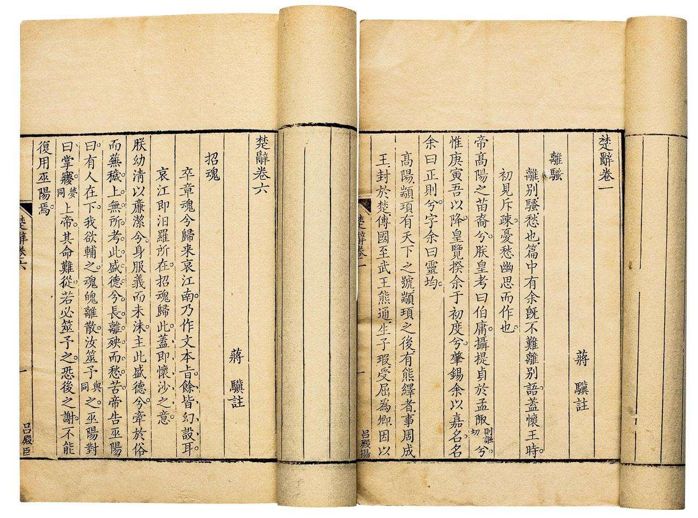 楚辭卷一
蔣驥註
離騷
離別騷愁也。篇中有余既不難離別語。蓋懷王時
初見斥疎。憂愁幽思而作也。
帝高陽之苗裔兮。朕皇考曰伯庸。攝提貞於孟陬側誰切兮。
惟庚寅吾以降。皇覽揆余于初度兮。肇錫余以嘉名。名
余曰正則兮。字余曰靈均。
高陽。顓頊有天下之號。顓頊之後有熊繹者。事周成
王。封於楚。傳國至武王熊通。生子瑕。受屈為卿。因以
楚辭卷一
一
楚辭卷六
蔣驥註
招魂
卒章魂兮歸來哀江南。乃作文本旨。餘皆幻設耳。
哀江即汨羅所在。招魂歸此。蓋即懷沙之意
朕幼清以廉潔兮。身服義而未沬。主此盛德兮。牽於俗
而蕪穢。上無所考此盛德兮。長離殃而愁苦。帝告巫陽
曰。有人在下。我欲輔之。魂魄離散。汝筮予與同之。巫陽對
曰。掌㝱夢同上帝其命難從。若必筮予之。恐後之謝。不能
復用巫陽焉。
楚辭卷六
一